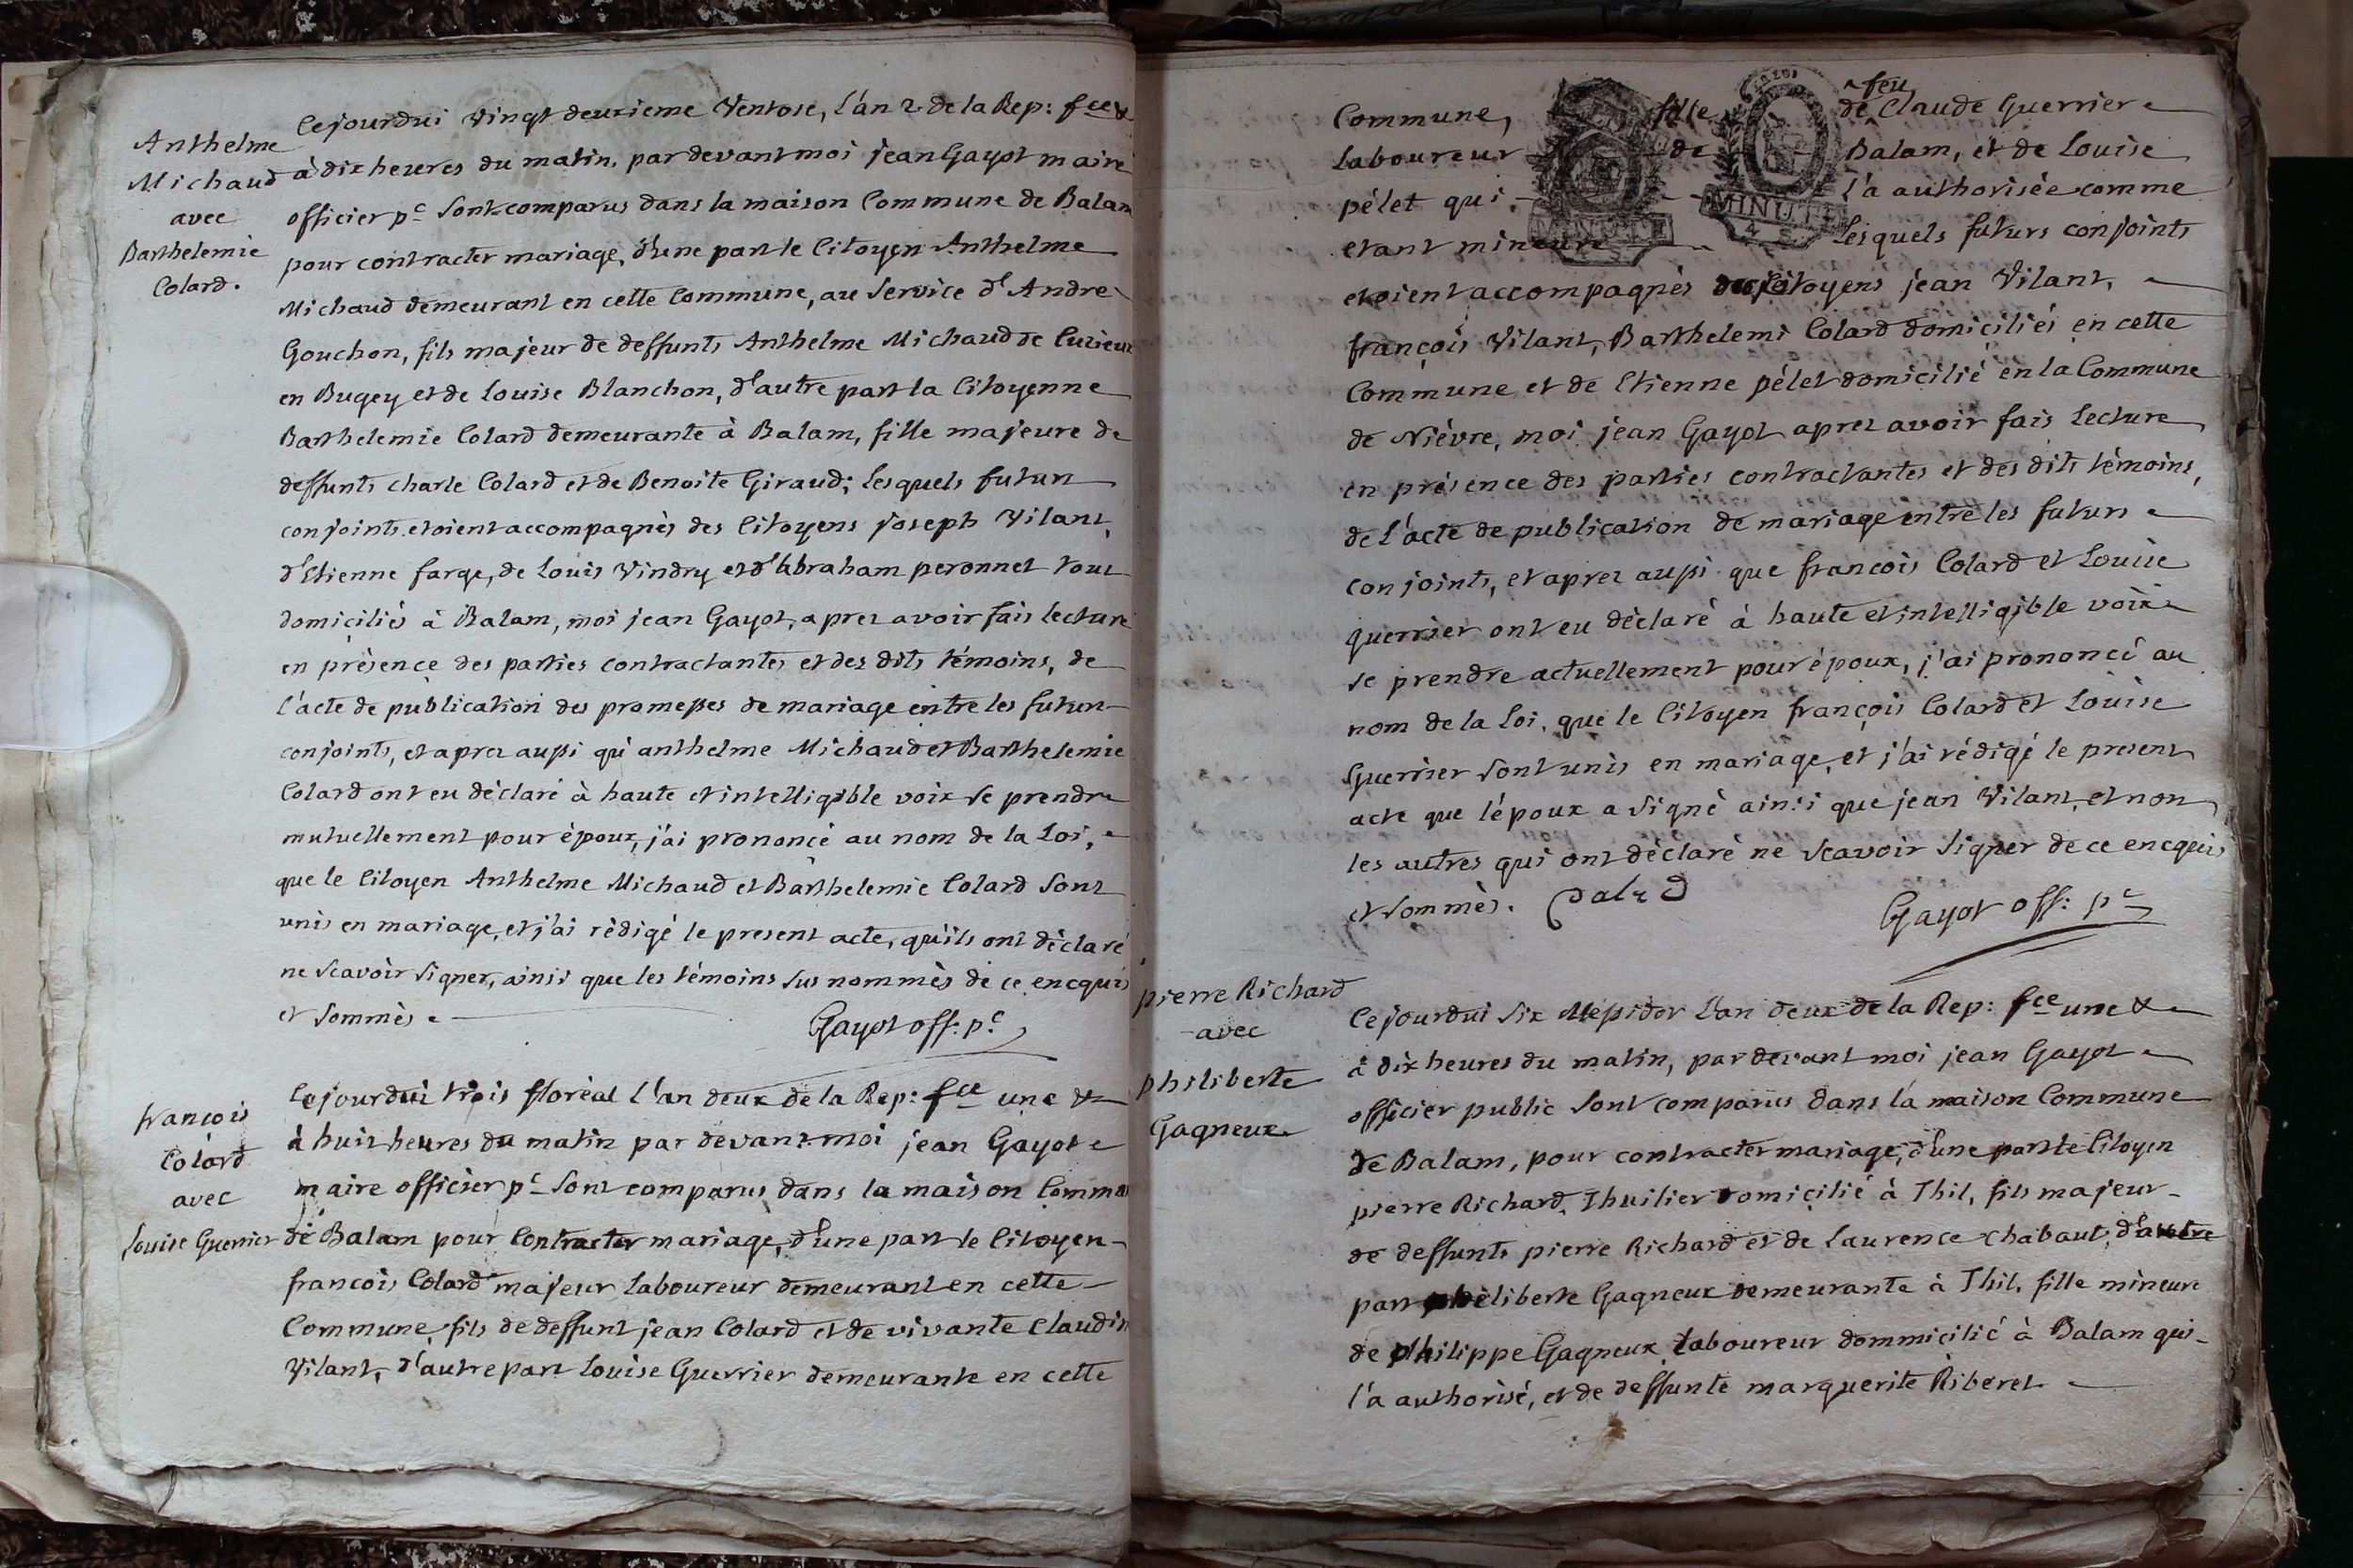 Anthelme
Michaud
avec
Barthelemie
Colard.
Cejourdui vingt deuxieme Ventose, l'an 2 de la Rep: fce &
à dix heures du matin, par devant moi jean Gayot maire
officier pc sont comparus dans la maison Commune de Balan
pour contracter mariage, d'une part le Citoyen Anthelme
Michaud demeurant en cette Commune, au Service d'André
Gouchon, fils majeur de deffunts Anthelme Michaud de Cuzieux
en Bugey et de Louise Blanchon, d'autre part la Citoyenne
Barthelemie Colard demeurante à Balam, fille majeure de
deffunts charle Colard et de Benoite Giraud; lesquels futurs
conjoints etoient accompagnès des Citoyens joseph Vilant,
d'Etienne farge, de Louis Vindry et d'Abraham peronnet tous
domiciliés à Balam, moi jean Gayot, aprez avoir fais lecture
en prèsence des parties contractantes et des dits témoins, de
l'acte de publication des promesses de mariage entre les futurs
conjoints, et aprez aussi qu'anthelme Michaud et Barthelemie
Colard ont eu déclaré à haute et intelligible voix se prendre
mutuellement pour époux, j'ai prononcé au nom de la Loi,
que le Citoyen Anthelme Michaud et Barthelemie Colard sont
unis en mariage, et j'ai rèdigé le present acte, qu'ils ont déclaré
ne scavoir signer, ainsi que les témoins sus nommès de ce encquis
et sommès
Gayot off: pc
francois
Colard
avec
Louise Guerrier
Cejourdui trois floréal l'an deux de la Rep: fce une &
à huit heures du matin par devant moi jean Gayot
maire officier pc sont comparus dans la maison Commu
de Balam pour Contracter mariage, d'une part le Citoyen
francois Colard majeur laboureur demeurant en cette
Commune, fils de deffunt jean Colard et de vivante Claudin
Vilant, d'autre part Louise Guerrier demeurante en cette
Commune, fille de feu Claude Guerrier
Laboureur de Balam, et de Louise
pélet qui l'a authorisée comme
etant mineure lesquels futurs conjoints
MINUTE
MINUTE
etoient accompagnès des Citoyens jean Vilant,
françois Vilant, Barthelemi Colard domiciliés en cette
Commune et de Etienne pélet domicilié en la Commune
de Nièvre, moi jean Gayot aprez avoir fais lecture
en présence des parties contractantes et des dits témoins,
de l'acte de publication de mariage entre les futurs
conjoints, et aprez aussi que francois Colard et Louise
guerrier ont eu déclaré à haute et intelligible voix
se prendre actuellement pour époux, j'ai prononcé au
nom de la Loi, que le Citoyen françois Colard et Louise
Guerrier sont unis en mariage, et j'ai rédigé le present
acte que lépoux a signé ainsi que jean Vilant, et non
les autres qui ont déclaré ne scavoir signer de ce encquis
et sommès.
Gayot off: pc
pierre Richard
avec
philiberte
Gagneux
Cejourdui six Messidor l'an deux de la Rep: fce une &
à dix heures du matin, par devant moi jean Gayot
officier public sont comparus dans la maison Commune
de Balam, pour contracter mariage, d'une part le Citoyen
pierre Richard, Thuilier domicilié à Thil, fils majeur
de deffunts pierre Richard et de Laurence Chabaut, d'autre
part philiberte Gagneux demeurante à Thil, fille mineure
de philippe Gagneux laboureur dommicilié à Balam qui
l'a authorisé, et de deffunte marguerite Riberet